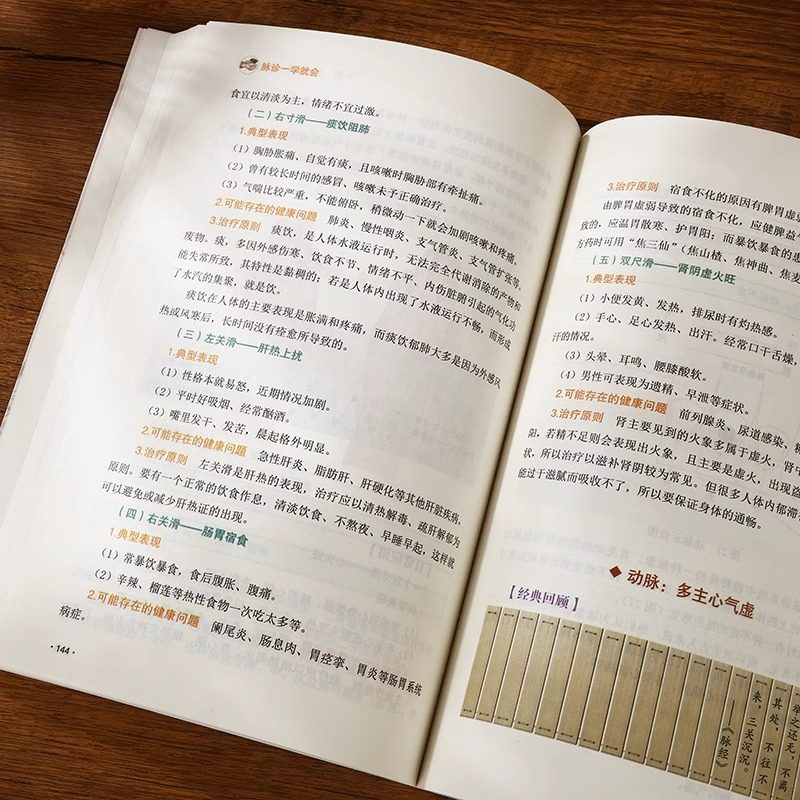 脉诊一学就会
食宜以清淡为主，情绪不宜过激。
（二）右寸滑——痰饮阻肺
1.典型表现
（1）胸胁胀痛、自觉有痰，且咳嗽时胸胁部有牵扯痛。
（2）曾有较长时间的感冒、咳嗽未予正确治疗。
（3）气喘比较严重，不能俯卧，稍微动一下就会加剧咳嗽和疼痛。
2.可能存在的健康问题 肺炎、慢性咽炎、支气管炎、支气管扩张等。
3.治疗原则 痰饮，是人体水液运行时，无法完全代谢消除的产物和
废物。痰，多因外感伤寒、饮食不节、情绪不平、内伤脏腑引起的气化功
能失常所致，其特性是黏稠的；若是人体内出现了水液运行不畅，而形成
了水汽的集聚，就是饮。
痰饮在人体的主要表现是胀满和疼痛，而痰饮郁肺大多是因为外感风
热或风寒后，长时间没有痊愈所导致的。
（三）左关滑——肝热上扰
1.典型表现
（1）性格本就易怒，近期情况加剧。
（2）平时好吸烟、经常酗酒。
（3）嘴里发干、发苦，晨起格外明显。
2.可能存在的健康问题 急性肝炎、脂肪肝、肝硬化等其他肝脏疾病。
3.治疗原则 左关滑是肝热的表现，治疗应以清热解毒、疏肝解郁为
原则。要有一个正常的饮食作息，清淡饮食、不熬夜、早睡早起，这样就
可以避免或减少肝热证的出现。
（四）右关滑——肠胃宿食
1.典型表现
（1）常暴饮暴食，食后腹胀、腹痛。
（2）辛辣、榴莲等热性食物一次吃太多等。
2.可能存在的健康问题 阑尾炎、肠息肉、胃痉挛、胃炎等肠胃系统
病症。
·144·
3.治疗原则 宿食不化的原因有脾胃虚
由脾胃虚弱导致的宿食不化，应健脾益气
致的，应温胃散寒、护胃阳；而暴饮暴食的患
方药时可用“焦三仙”（焦山楂、焦神曲、焦麦
（五）双尺滑——肾阴虚火旺
1.典型表现
（1）小便发黄、发热，排尿时有灼热感。
（2）手心、足心发热、出汗。经常口干舌燥，
汗的情况。
（3）头晕、耳鸣、腰膝酸软。
（4）男性可表现为遗精、早泄等症状。
2.可能存在的健康问题 前列腺炎、尿道感染、糖
3.治疗原则 肾主要见到的火象多属于虚火，肾
阳，若精不足则会表现出火象，且主要是虚火，出现
状，所以治疗以滋补肾阴较为常见。但很多人体内郁滞
能过于滋腻而吸收不了，所以要保证身体的通畅。
◆ 动脉：多主心气虚
【经典回顾】
举之还无，不离
其处，不往不
来，三关沉沉。
——《脉经》